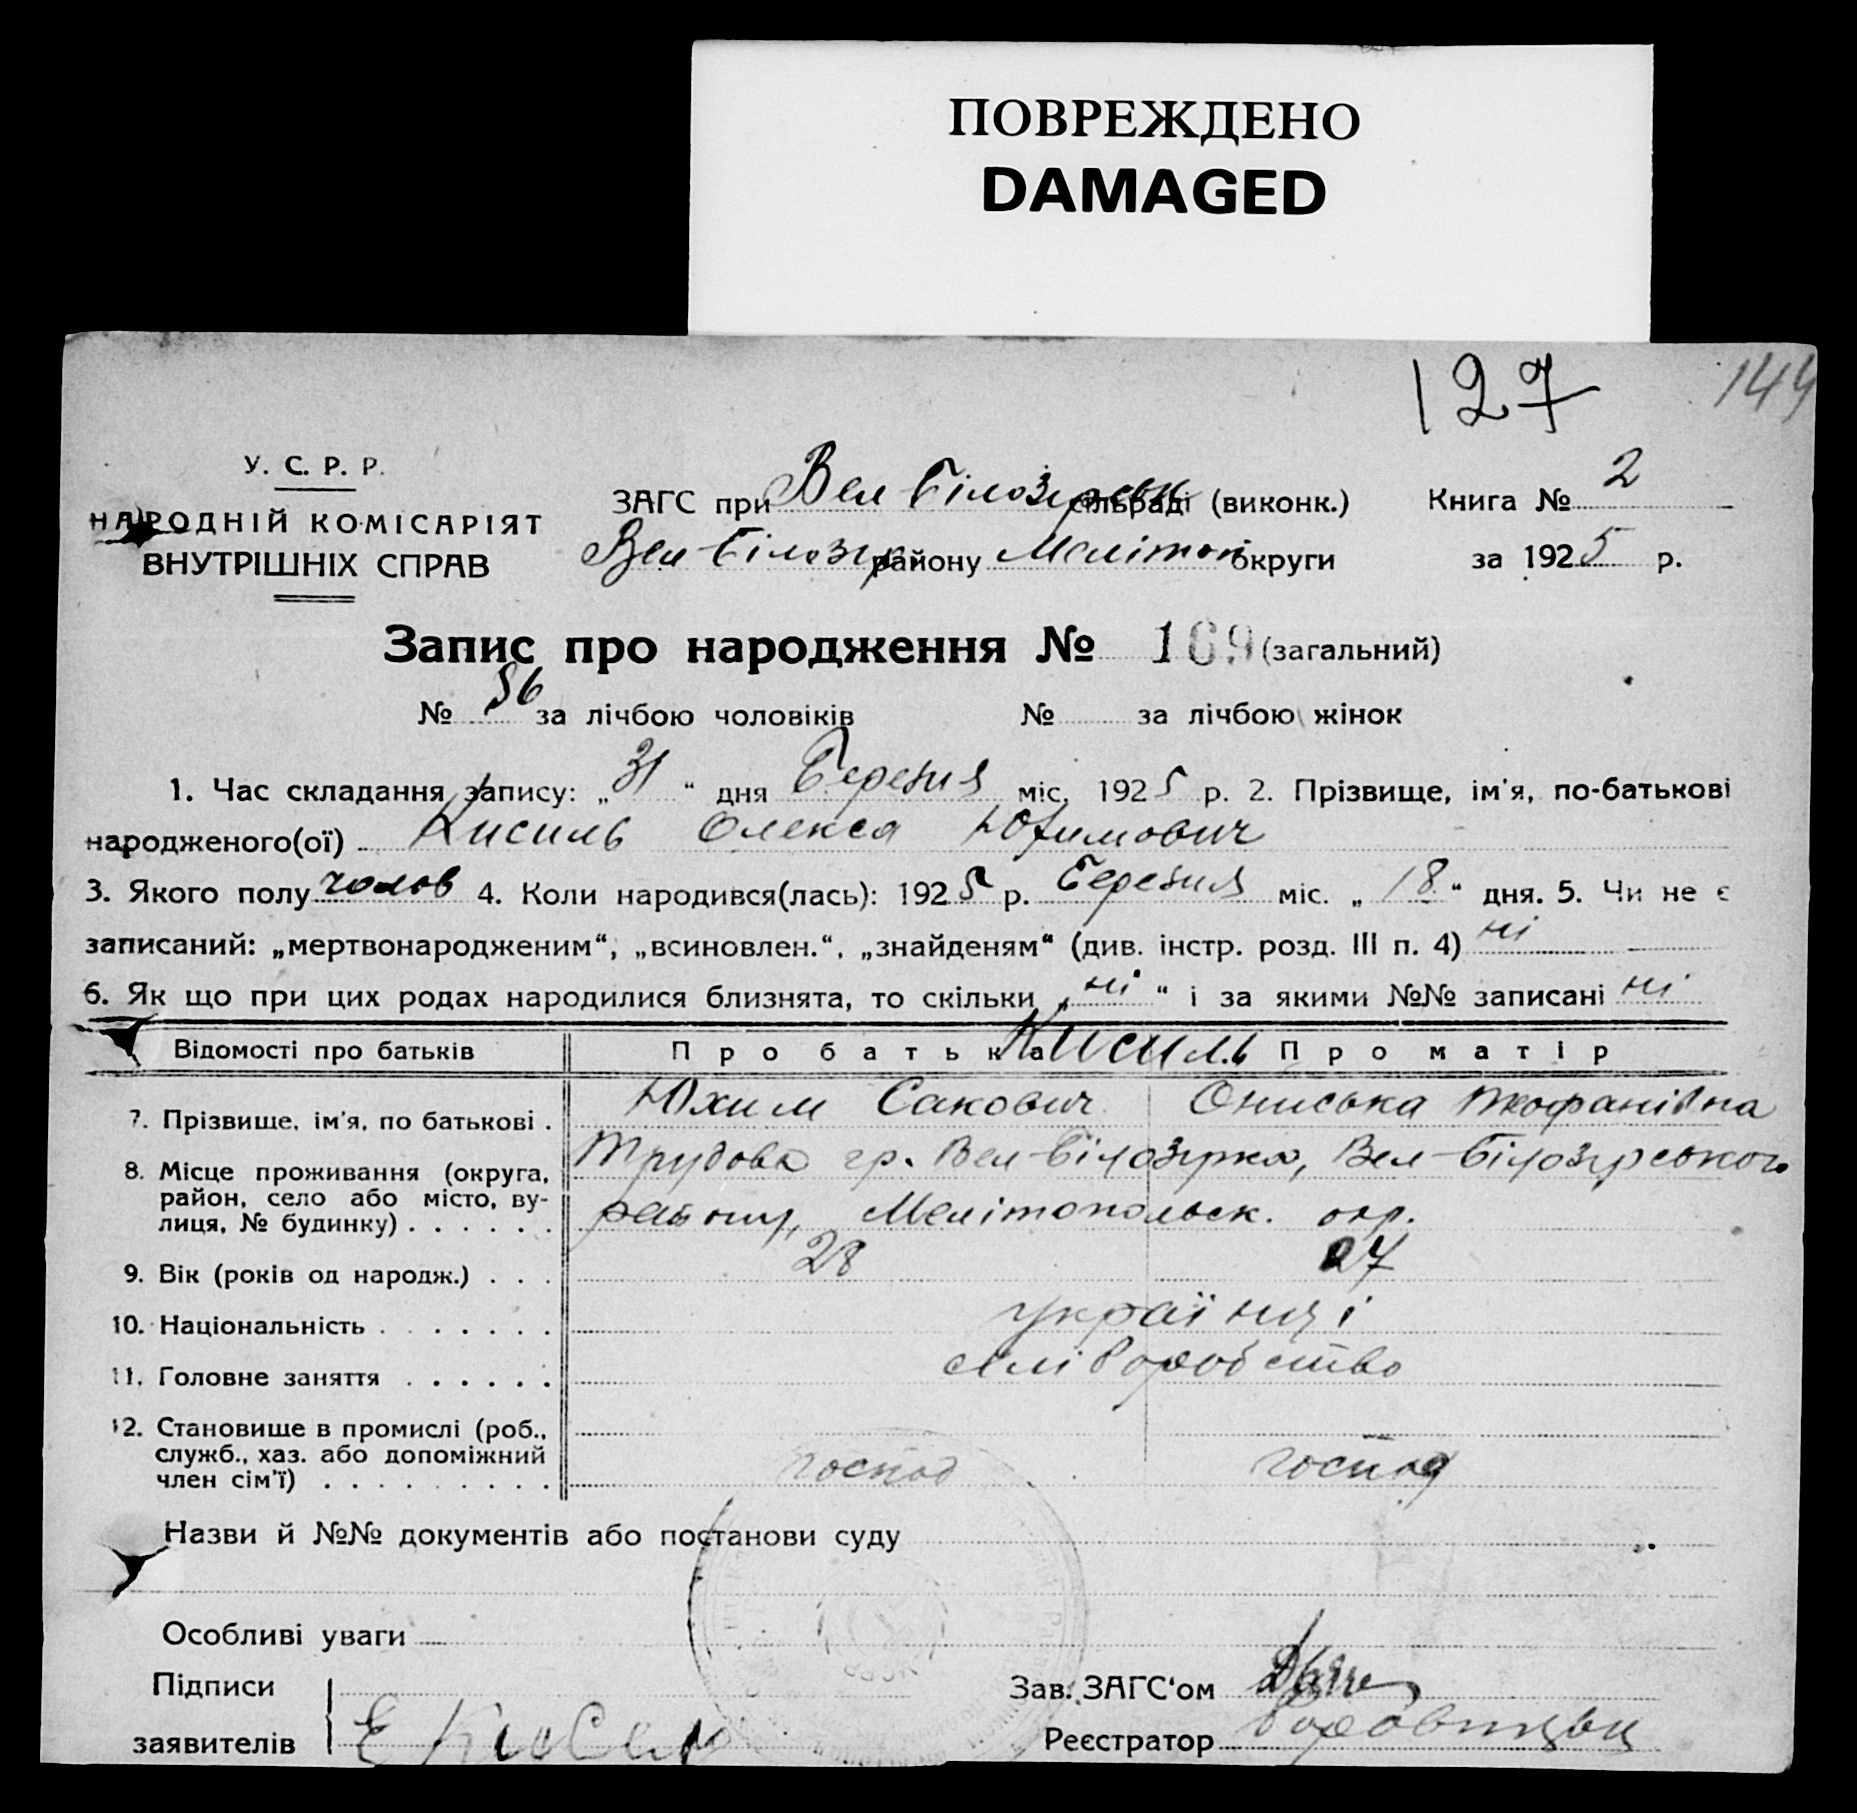 ПОВРЕЖДЕНО
DAMAGED
127 144
У. С. Р. Р.
НАРОДНІЙ КОМІСАРІЯТ
ВНУТРІШНІХ СПРАВ
ЗАГС при Вел Білозірськ сільраді (виконк.) Книга № 2
Вел Білозір району Мелітоп округи за 1925 р.
Запис про народження № 169 (загальний)
№ 86 за лічбою чоловіків № за лічбою жінок
1. Час складання запису: „31“ дня Березня міс. 1925 р. 2. Прізвище, ім'я, по-батькові
народженого(ої) Кисиль Олекса Юхимович
3. Якого полу чолов 4. Коли народився(лась): 1925 р. Березня міс. „18“ дня. 5. Чи не є
записаний: „мертвонародженим“, „всиновлен.“, „знайденям“ (див. інстр. розд. III п. 4) ні
6. Як що при цих родах народилися близнята, то скільки „ні“ і за якими №№ записані ні
Відомості про батьків Про батька Кисиль Про матір
7. Прізвище, ім'я, по батькові . Юхим Сакович Ониська Теофанівна
8. Місце проживання (округа, Трудова гр. Вел-Білозірка, Вел-Білозірського
район, село або місто, ву-
лиця, № будинку) . . . . . . району, Мелітопольск. окр.
9. Вік (років од народж.) . . . 28 27
10. Національність . . . . . . . українці
11. Головне заняття . . . . . . хліборобство
12. Становище в промислі (роб.,
служб., хаз. або допоміжний господ господ
член сім'ї) . . . . . . . . .
Назви й №№ документів або постанови суду
Особливі уваги
Підписи Зав. ЗАГС'ом
заявителів Е Кисель Реєстратор